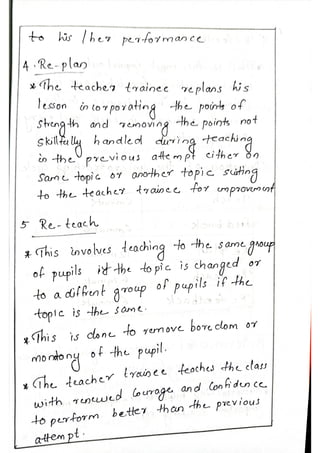 to his /her performance
4. Re-plan
* The teacher trainee replans his
lesson incorporating the points of
strength and removing the points not
skillfully handled during teaching
in the previous attempt either on
same topic or another topic suiting
to the teacher trainee for improvement
5 Re-teach
* This involves teaching to the same group
of pupils if the topic is changed or
to a diffrent group of pupils if the
topic is the same.
* This is done to remove boredom or
montony of the pupil.
* The teacher trainee teaches the class
with renewed courage and confidence
to perform better than the previous
attempt.